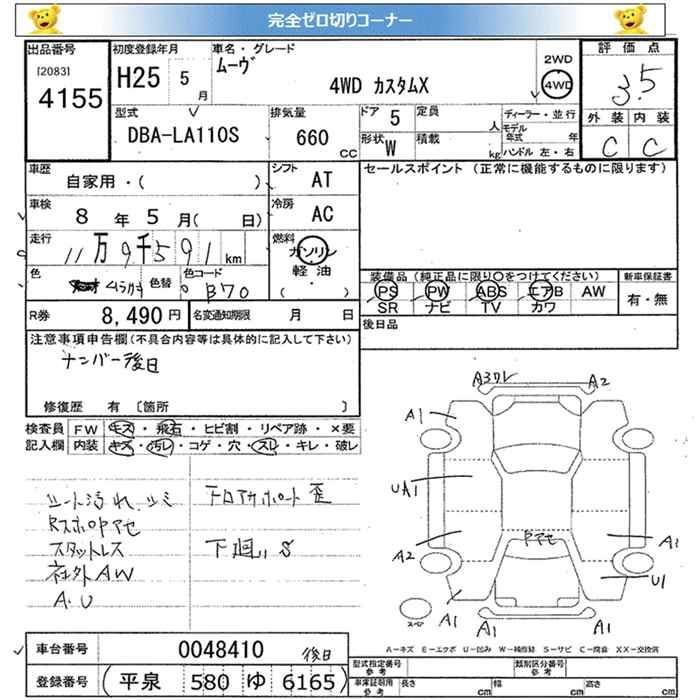 完全ゼロ切りコーナー
出品番号
[2083]
4155
初度登録年月
H25 5月
車名・グレード
ムーヴ
4WD カスタムX
2WD
4WD
評価点
3.5
外装 内装
C C
型式
DBA-LA110S
排気量
660 CC
ドア 5
定員 人
形状 W
積載 kg
ディーラー・並行
モデル年式 年
ハンドル 左・右
車歴
自家用・( )
シフト AT
車検
8年 5月( 日)
冷房 AC
走行
11万9千591 km
燃料
ガソリン
軽油
( )
色
色替
色コード
B70
R券 8,490円
名変通知期限 月 日
セールスポイント (正常に機能するものに限ります)
装備品(純正品に限り○をつけてください)
PS PW ABS エアB AW
SR ナビ TV カワ
新車保証書
有・無
後日品
注意事項申告欄(不具合内容等は具体的に記入して下さい)
ナンバー後日
修復歴 有 〔箇所 〕
検査員 FW キズ・飛石・ヒビ割・リペア跡・×要
記入欄 内装 キズ・汚レ・コゲ・穴・スレ・キレ・破レ
シート汚れ、シミ
RスポロPアセ
スタットレス
社外AW
A.U
下廻りS
A3ワレ
A2
A1
UA1
A2
Pアセ
A1
U1
A1
A1
A1
スペア
A-キズ E-エクボ U-凹み W-補修跡 S-サビ C-腐食 XX-交換済
車台番号 0048410 後日
登録番号 (平泉 580 ゆ 6165)
型式指定番号 参考
類別区分番号 参考
車庫証明用 参考
長さ cm
幅 cm
高さ cm